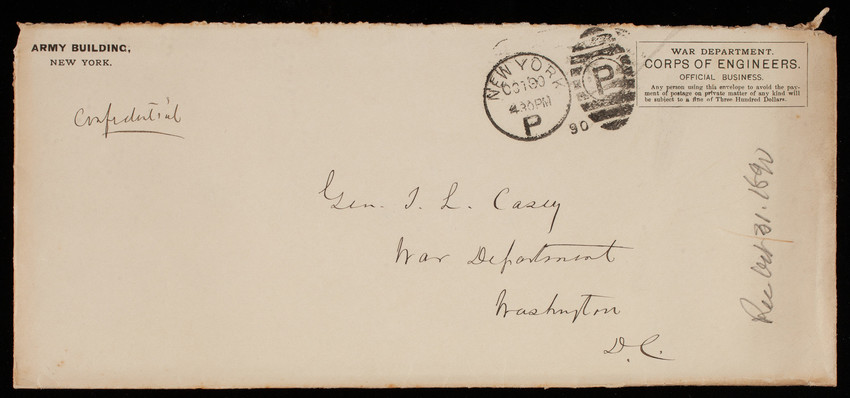 ARMY BUILDING,
NEW YORK.
Confidential
NEW YORK
430PM
P
90
P
WAR DEPARTMENT.
CORPS OF ENGINEERS.
OFFICIAL BUSINESS.
Any person using this envelope to avoid the pay-
ment of postage on private matter of any kind will
be subject to a fine of Three Hundred Dollars.
Gen. T. L. Casey
War Department
Washington
D.C.
Rec Oct 31. 1890